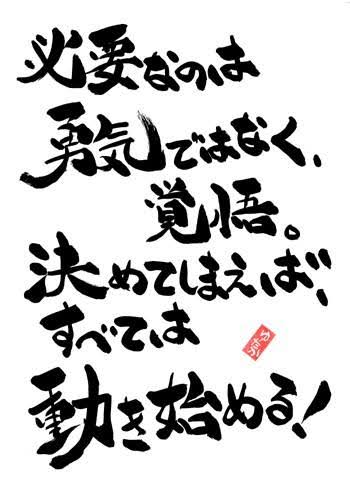 必要なのは
勇気ではなく、
覚悟。
決めてしまえば、
すべては
動き始める!